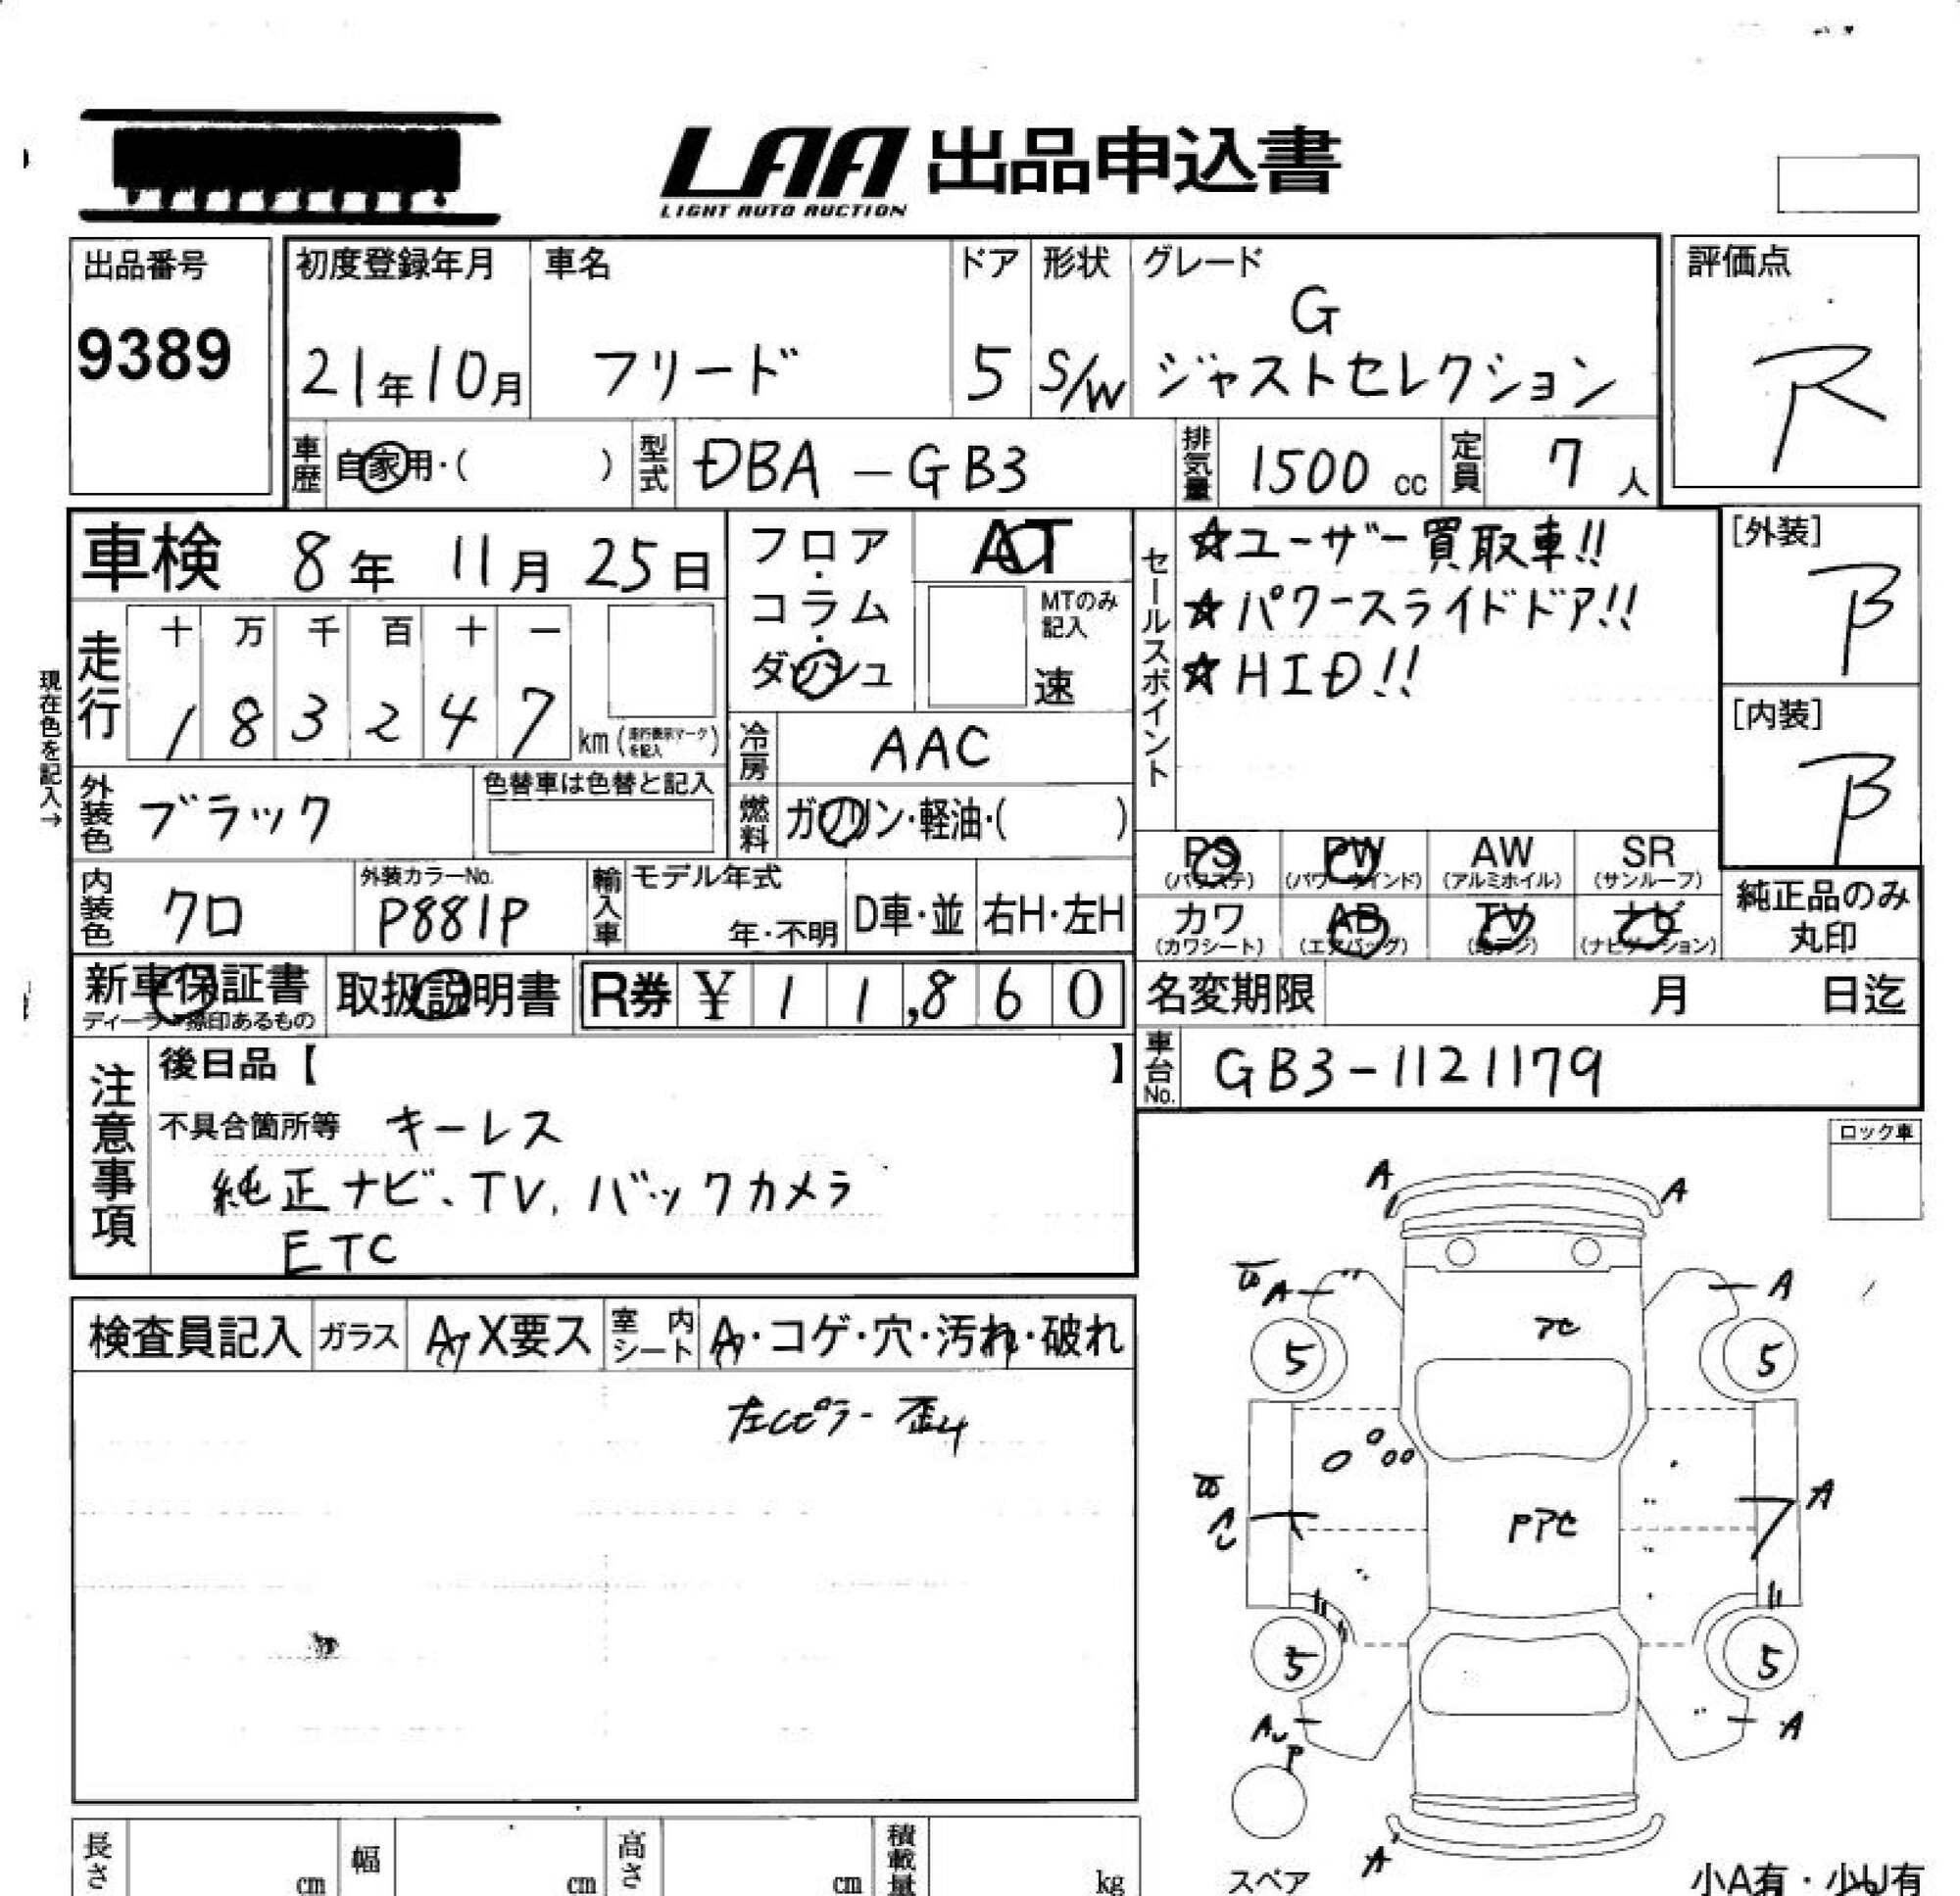 LAA 出品申込書
LIGHT AUTO AUCTION
出品番号
9389
初度登録年月
21年10月
車名
フリード
ドア
5
形状
S/W
グレード
G
ジャストセレクション
評価点
R
車歴
自家用・( )
型式
DBA-GB3
排気量
1500 cc
定員
7 人
車検 8年 11月 25日
フロア・コラム・ダッシュ
AT
MTのみ記入
速
セールスポイント
☆ユーザー買取車!!
☆パワースライドドア!!
☆HID!!
[外装]
B
[内装]
B
現在色を記入→
走行
十 万 千 百 十 一
1 8 3 2 4 7 km (走行表示マークを記入)
冷房
AAC
外装色
ブラック
色替車は色替と記入
燃料
ガソリン・軽油・( )
PS (パワステ)
PW (パワーウインド)
AW (アルミホイル)
SR (サンルーフ)
カワ (カワシート)
AB (エアバッグ)
TV (地デジ)
ナビ (ナビゲーション)
純正品のみ丸印
内装色
クロ
外装カラーNo.
P881P
輸入車
モデル年式
年・不明
D車・並
右H・左H
新車保証書
ディーラー捺印あるもの
取扱説明書
R券 ¥ 11,860
名変期限 月 日迄
車台No.
GB3-1121179
注意事項
後日品【 】
不具合箇所等 キーレス
純正ナビ、TV、バックカメラ
ETC
ロック車
検査員記入
ガラス
A・X要ス
室内シート
A・コゲ・穴・汚れ・破れ
左Cピラー歪み
A A
A A
5 5
A
5 5
A
P
A
スペア
小A有・小U有
長さ cm
幅 cm
高さ cm
積載量 kg